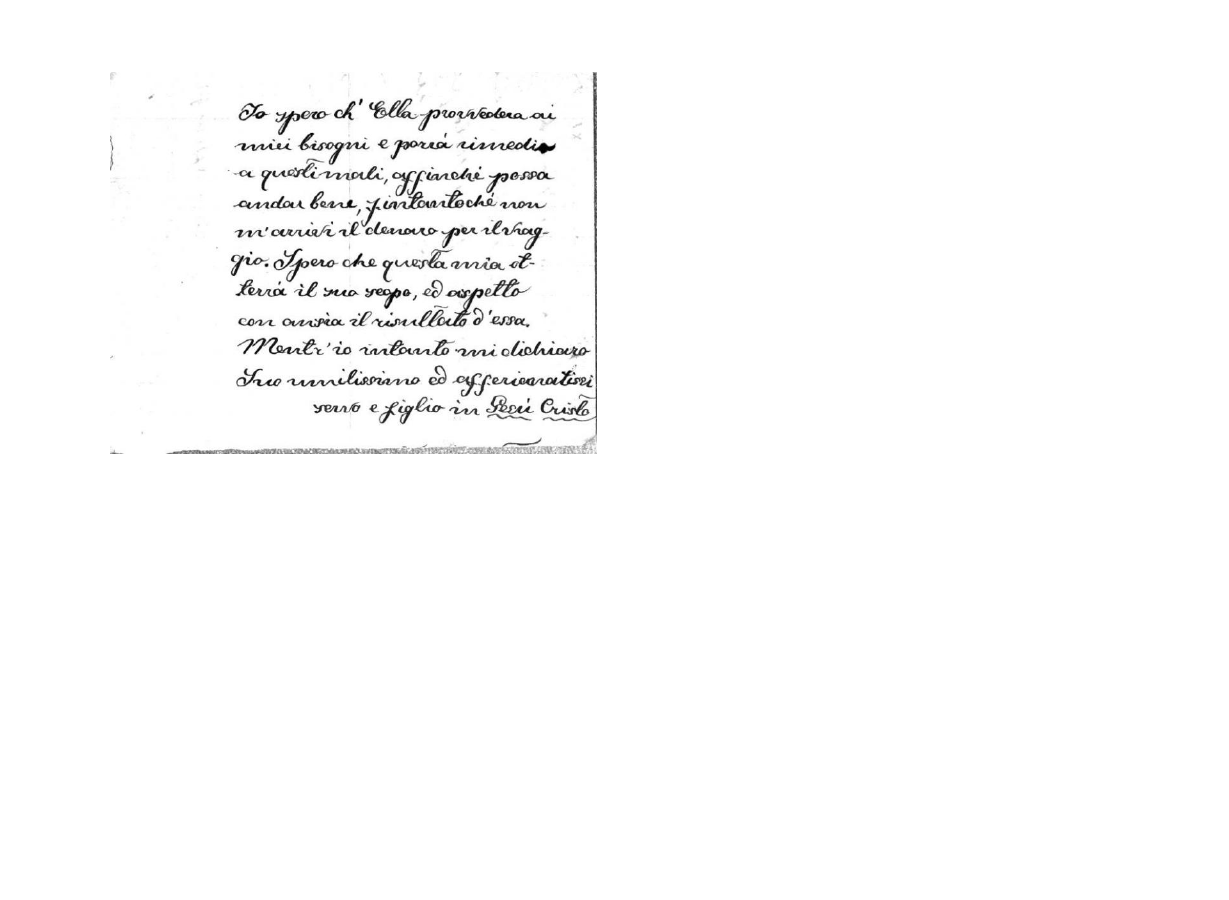 Io spero ch' Ella provvederà ai
miei bisogni e porrà rimedio
a questi mali, affinché possa
andar bene, fintantoché non
m'arrivi il denaro per il viag-
gio. Spero che questa mia ot-
terrà il suo scopo, ed aspetto
con ansia il risultato d'essa.
Mentr'io intanto mi dichiaro
Suo umilissimo ed
servo e figlio in Gesù Cristo